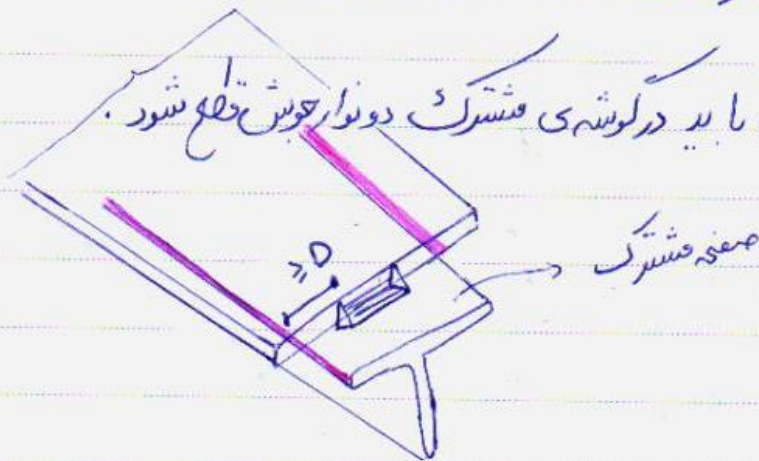 باید در گوشه‌ی مشترک دو نوار جوش قطع شود.
صفحه مشترک
≥D